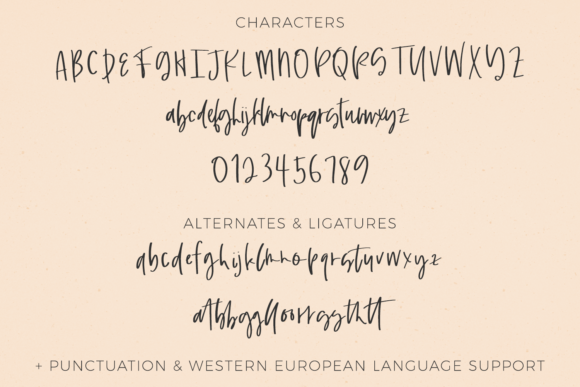 CHARACTERS
ABCDEFGHIJKLMNOPQRSTUVWXYZ
abcdefghijklmnopqrstuvwxyz
0123456789
ALTERNATES & LIGATURES
abcdefghijklmnopqrstuvwxyz
+ PUNCTUATION & WESTERN EUROPEAN LANGUAGE SUPPORT